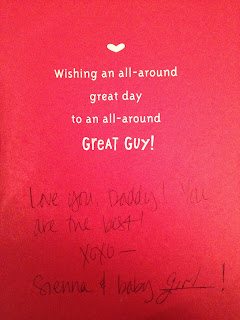 Wishing an all-around
great day
to an all-around
GREAT GUY!
Love you, Daddy! You
are the best!
XOXO—
Sienna & baby girl!